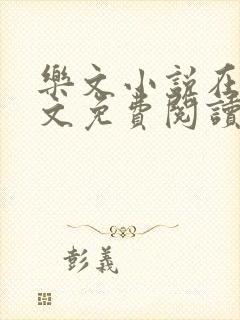 樂文小說在
文免費閱讀
彭義